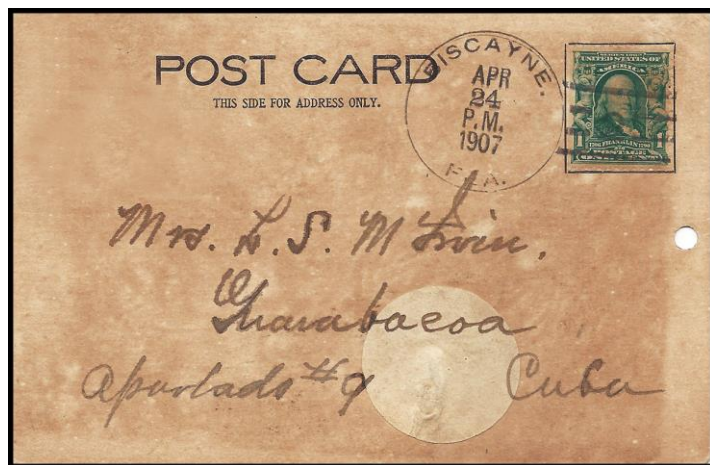 POST CARD
THIS SIDE FOR ADDRESS ONLY.
BISCAYNE.
APR
24
P.M.
1907
FLA.
UNITED STATES OF
AMERICA
FRANKLIN
POSTAGE
Mrs. L. S. M
Guanabacoa
Apartado #9 Cuba